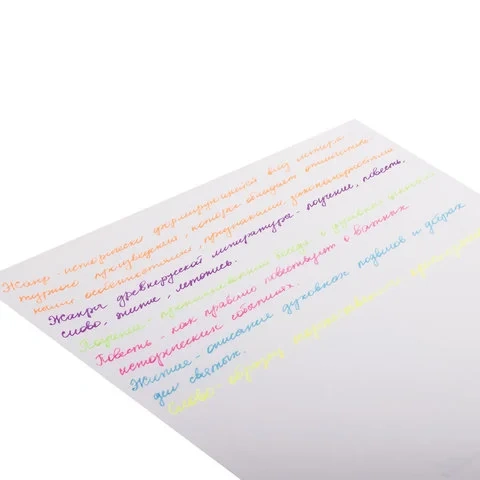 Жанр - исторически формирующийся вид литера-
турного произведения, которая обладает отличитель-
ными особенностями, признаками, закономерностями
Жанры древнерусской литературы - поучение, повесть,
слово, житие, летопись.
Поучение -
Повесть - как правило повествует о важных
исторических событиях.
Житие - описание духовных подвигов и добрых
дел святых.
Слово - образец